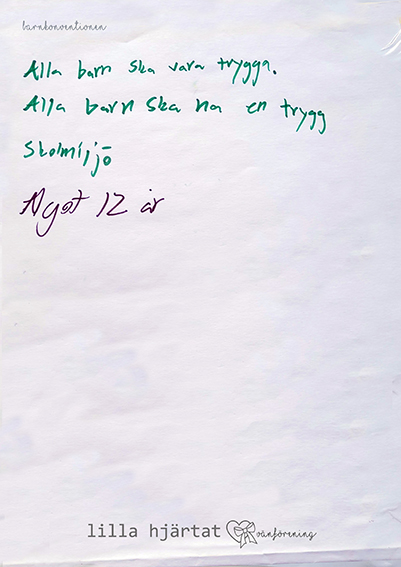 barnkonventionen
Alla barn ska vara trygga.
Alla barn ska ha en trygg
Skolmiljö
12 år
lilla hjärtat vänförening